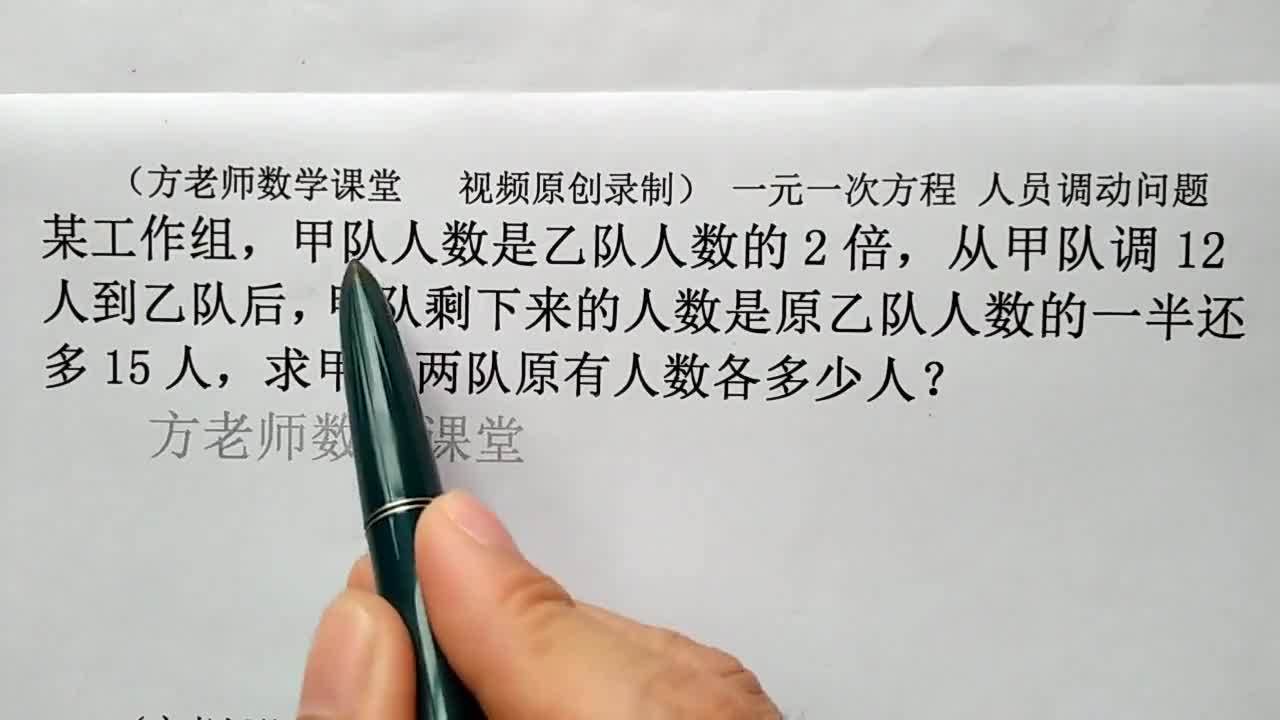 （方老师数学课堂 视频原创录制） 一元一次方程 人员调动问题
某工作组，甲队人数是乙队人数的2倍，从甲队调12
人到乙队后，甲队剩下来的人数是原乙队人数的一半还
多15人，求甲 两队原有人数各多少人？
方老师数 课堂